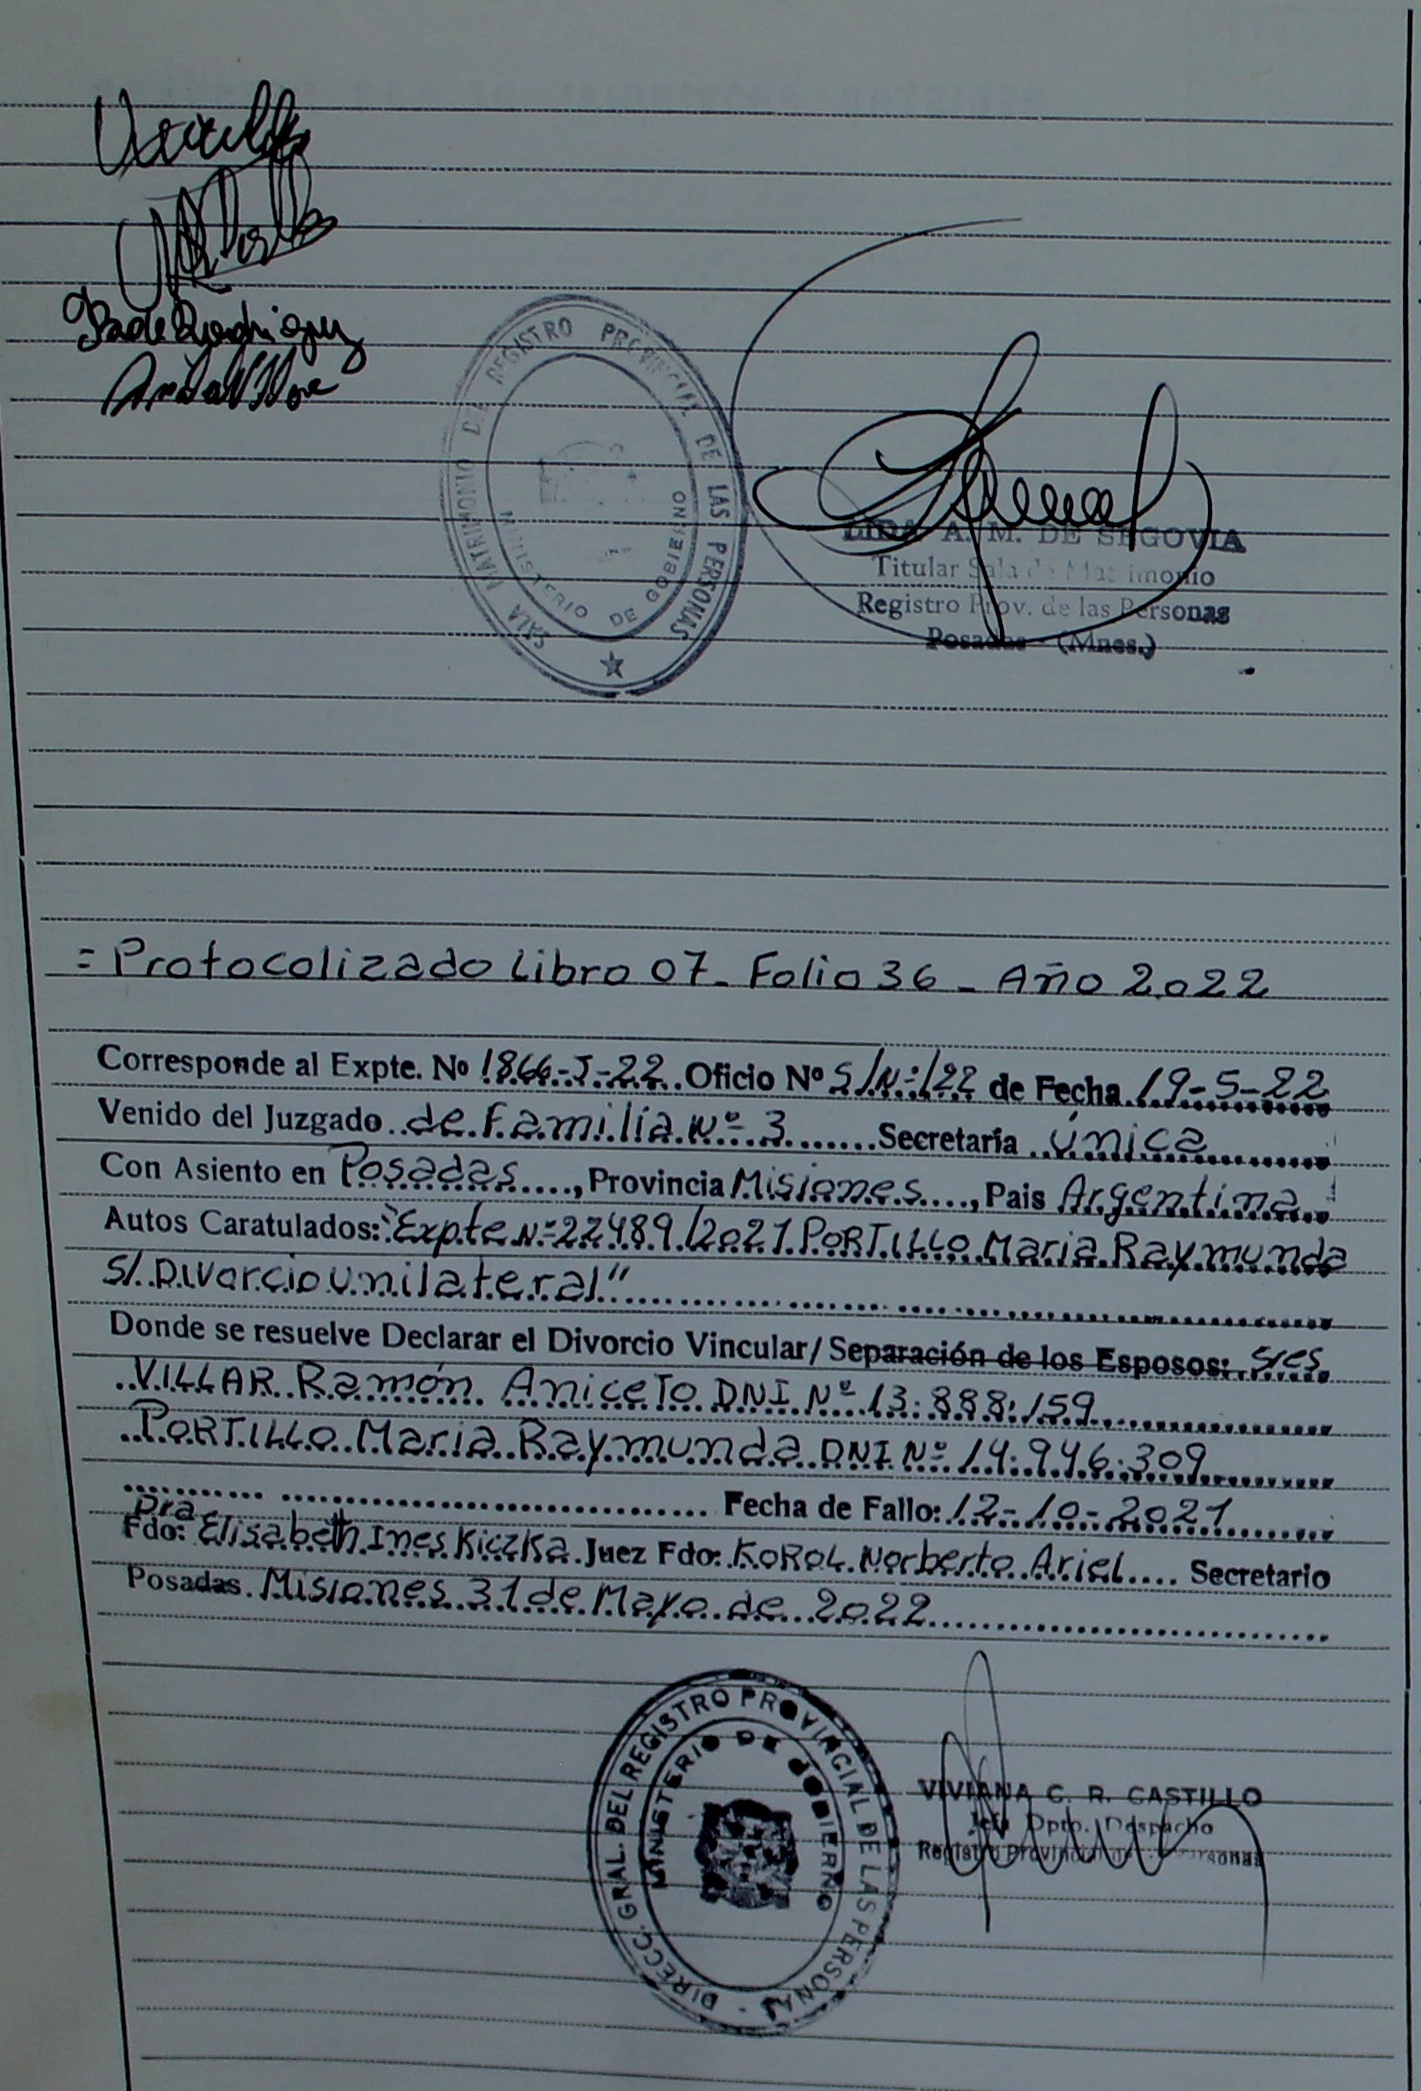 SALA MATRIMONIO DE REGISTRO PROVINCIAL DE LAS PERSONAS
MINISTERIO DE GOBIERNO
LIDA A. M. DE SEGOVIA
Titular Sala de Matrimonio
Registro Prov. de las Personas
Posadas - (Mnes.)
= Protocolizado Libro 07 - Folio 36 - Año 2022
Corresponde al Expte. No 1866-J-22 Oficio Nº S/Nº/22 de Fecha 19-5-22
Venido del Juzgado de Familia Nº 3 Secretaría Única
Con Asiento en Posadas, Provincia Misiones, Pais Argentina
Autos Caratulados: "Expte Nº 22489/2021 PORTILLO Maria Raymunda
S/ Divorcio Unilateral"
Donde se resuelve Declarar el Divorcio Vincular/ Separación de los Esposos: Sres
VILLAR Ramón Aniceto DNI Nº 13.888.159
PORTILLO Maria Raymunda DNI Nº 14.946.309
Fecha de Fallo: 12-10-2021
Dra
Fdo: Elisabeth Ines Kiczka Juez Fdo: KOROL Norberto Ariel Secretario
Posadas Misiones 31 de Mayo de 2022
DIRECC. GRAL. DEL REGISTRO PROVINCIAL DE LAS PERSONAS
MINISTERIO DE GOBIERNO
VIVIANA C. R. CASTILLO
Jefa Dpto. Despacho
Registro Provincial de las Personas